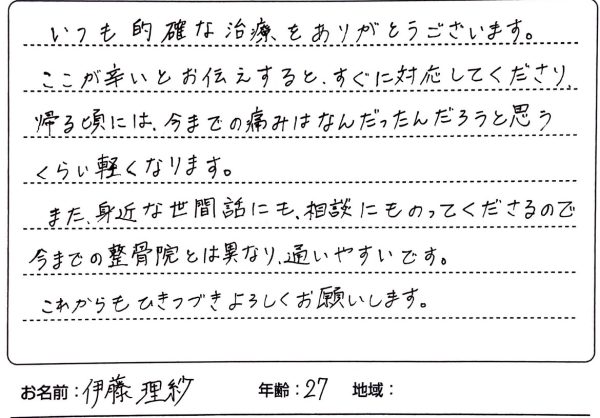 いつも的確な治療をありがとうございます。
ここが辛いとお伝えすると、すぐに対応してくださり、
帰る頃には、今までの痛みはなんだったんだろうと思う
くらい軽くなります。
また、身近な世間話にも、相談にものってくださるので
今までの整骨院とは異なり、通いやすいです。
これからもひきつづきよろしくお願いします。
お名前：伊藤 理紗 年齢：27 地域：